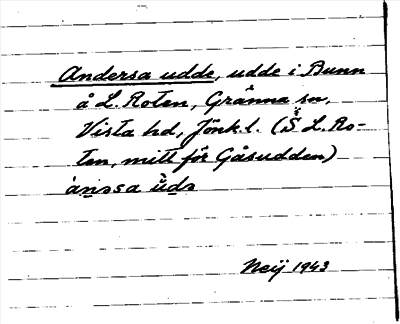 Andersa udde, udde i Bunn
å L. Roten, Gränna sn,
Vista hd, Jönk. l. (S L. Ro-
ten, mitt för Gåsudden)
anssa ùdə
Neij 1943